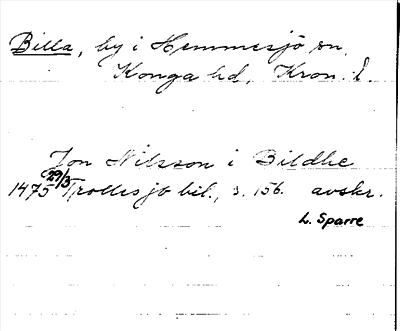 Billa, by i Hemmesjö sn,
Konga hd, Kron. l.
Jon Nilsson i Bildhe
1475 29/3 Trollesjö bil., s. 156. avskr.
L. Sparre